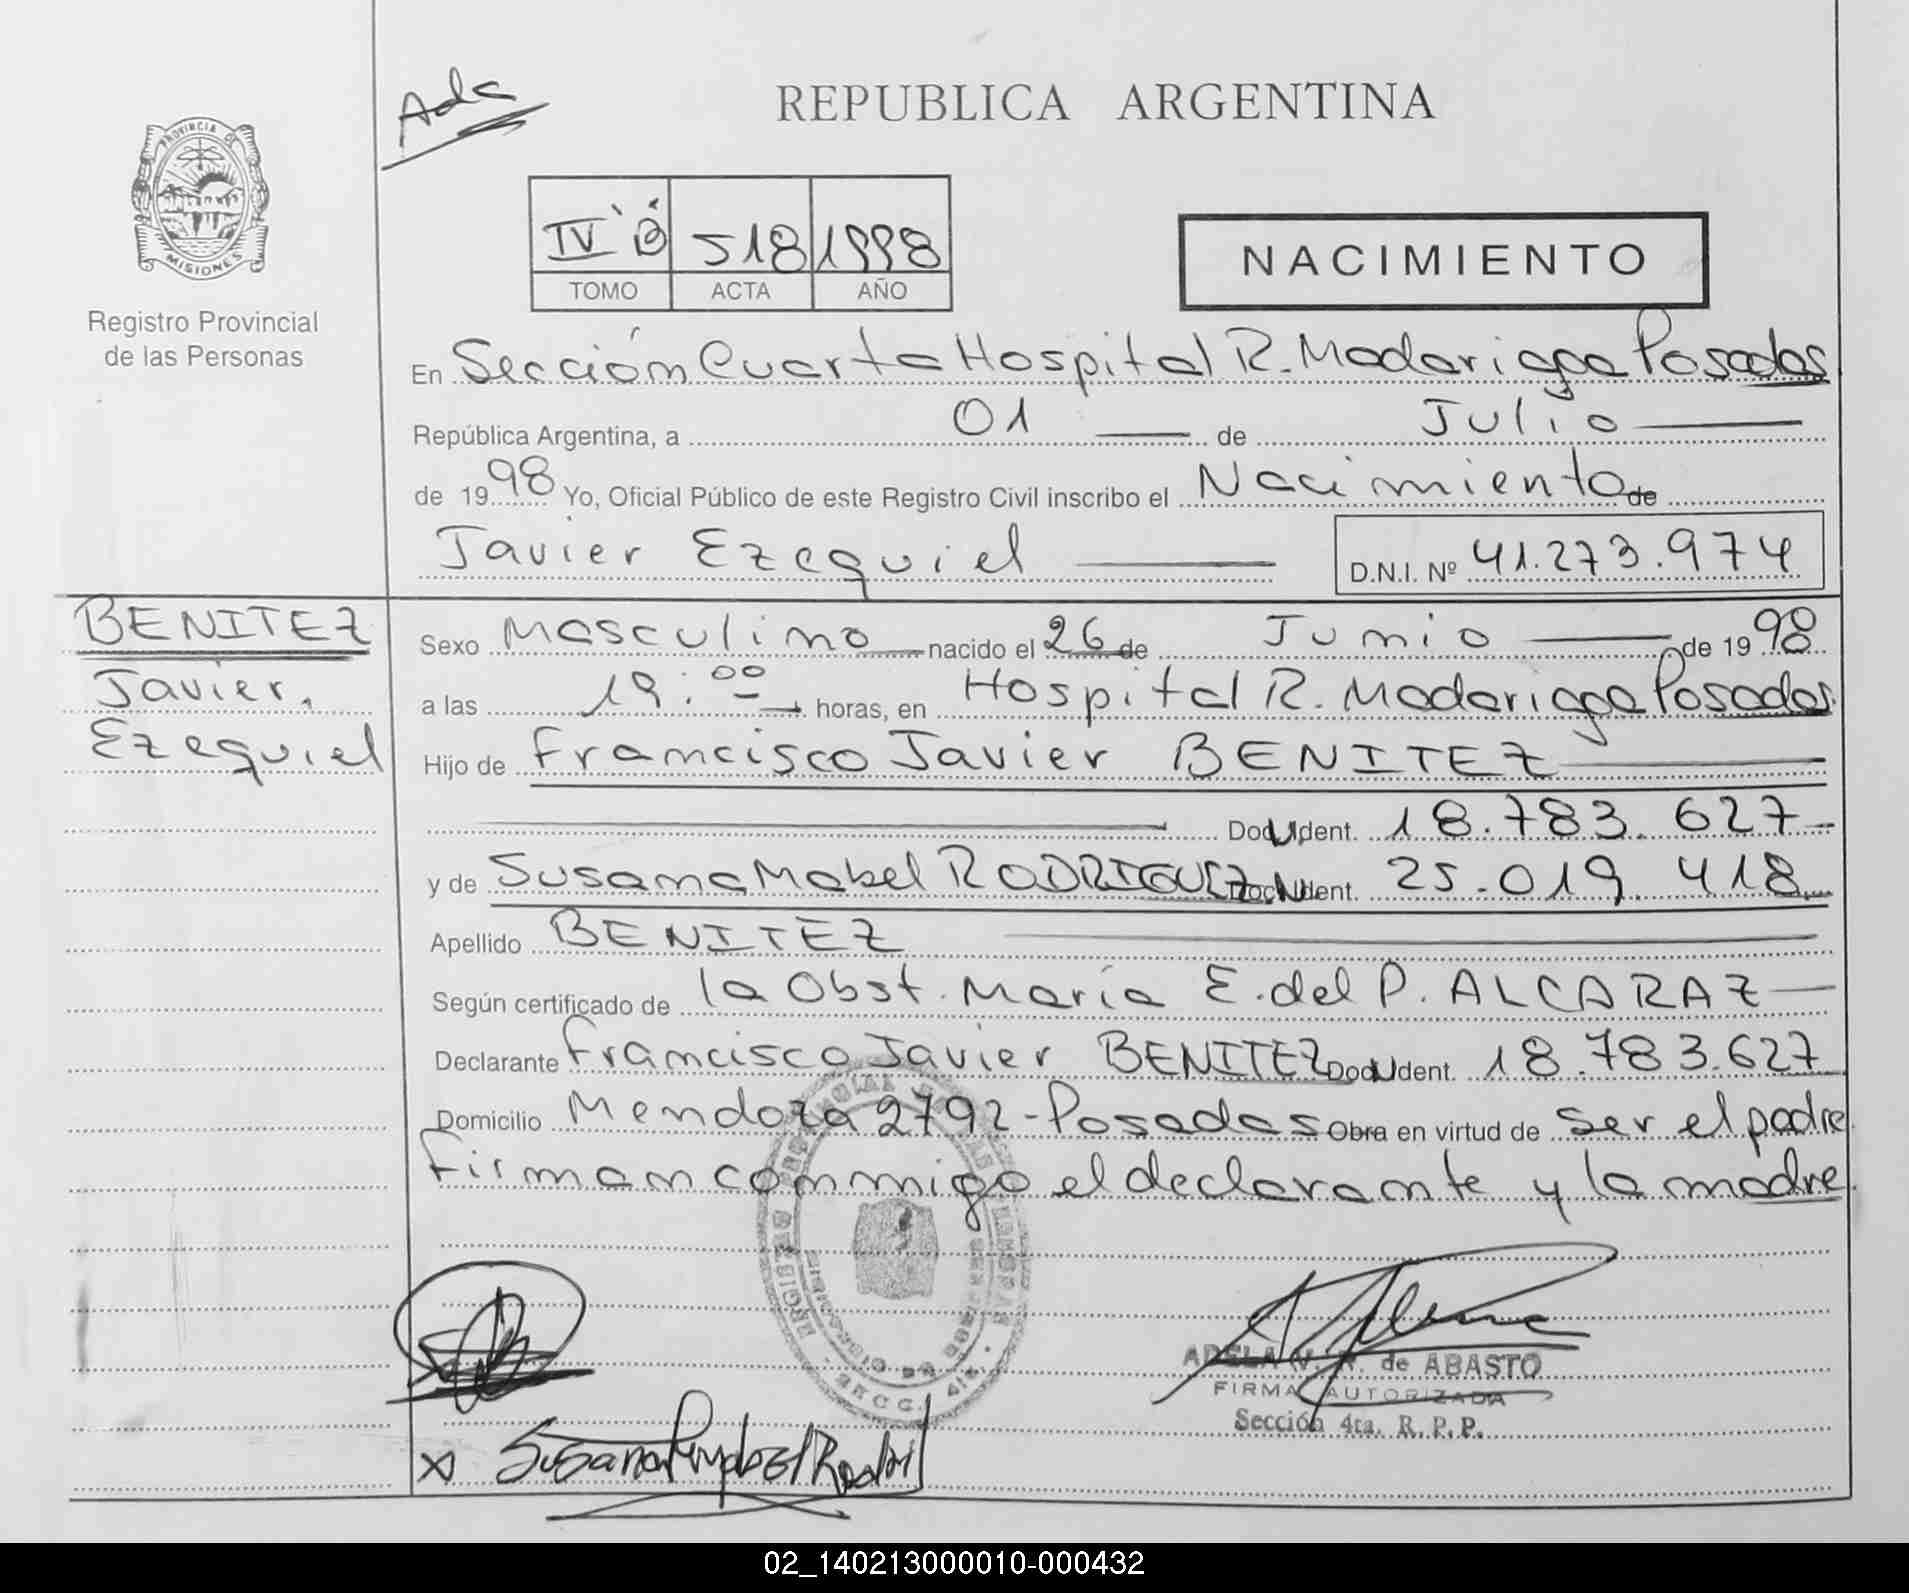 Ada
REPUBLICA ARGENTINA
PROVINCIA DE
MISIONES
Registro Provincial
de las Personas
IV "B" 518 1998
TOMO ACTA AÑO
NACIMIENTO
En Sección Cuarta Hospital R. Madariaga Posadas
República Argentina, a 01 de Julio
de 1998 Yo, Oficial Público de este Registro Civil inscribo el Nacimiento de
Javier Ezequiel D.N.I. Nº 41.273.974
BENITEZ
Javier,
Ezequiel
Sexo Masculino nacido el 26 de Junio de 1998
a las 19:00 horas, en Hospital R. Madariaga Posadas.
Hijo de Francisco Javier BENITEZ
Doc. Ident. 18.783.627
y de Susana Mabel RODRIGUEZ Doc. Ident. 25.019.418
Apellido BENITEZ
Según certificado de la Obst. María E. del P. ALCARAZ
Declarante Francisco Javier BENITEZ Doc. Ident. 18.783.627
Domicilio Mendoza 2792 - Posadas Obra en virtud de ser el padre
Firman conmigo el declarante y la madre.
ADELA V. de ABASTO
FIRMA AUTORIZADA
Sección 4ta. R. P. P.
x Susana Mabel
02_140213000010-000432